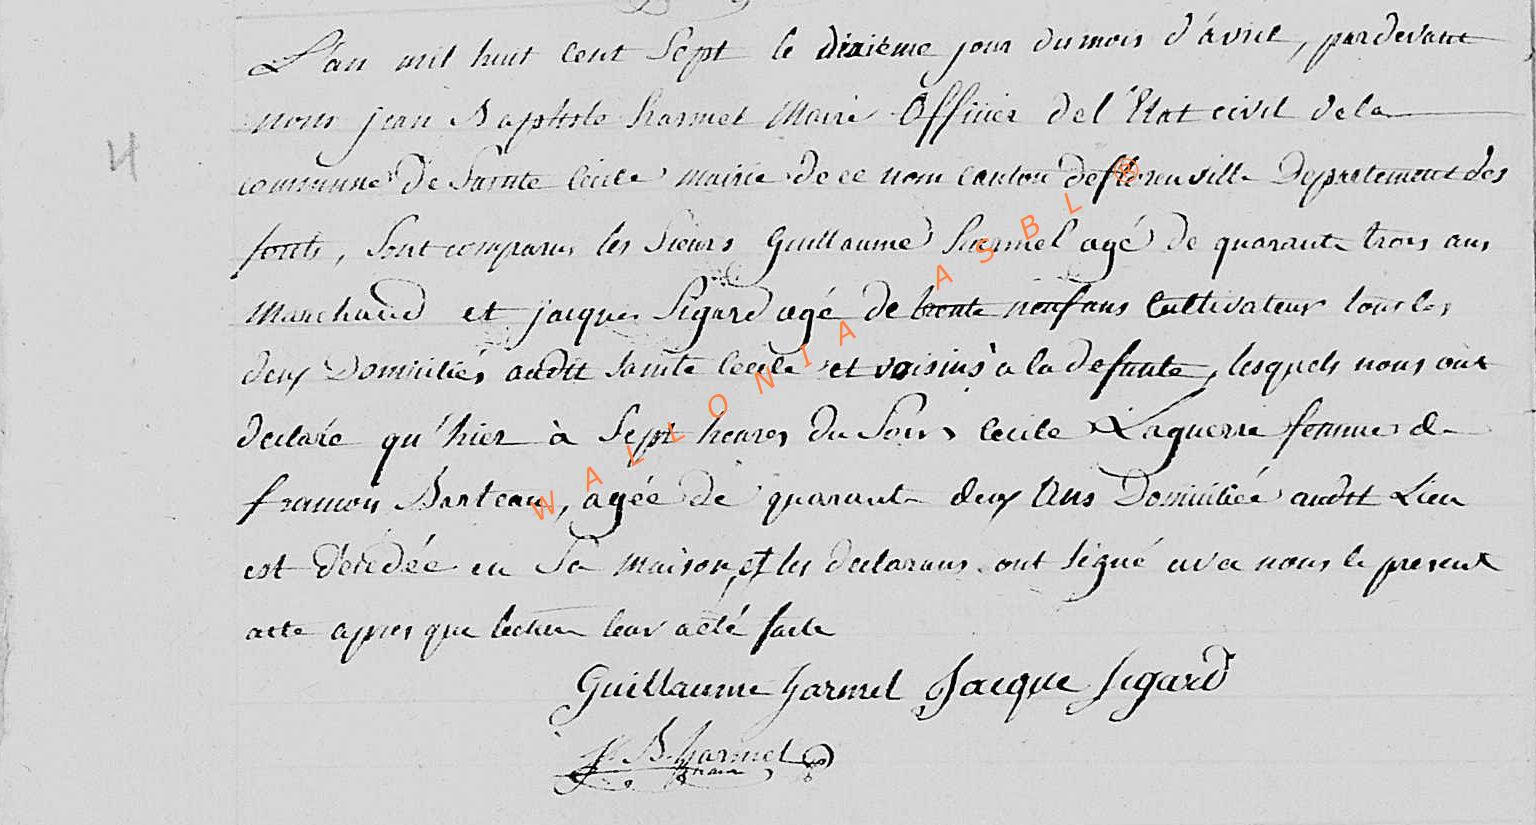 L'an mil huit cent Sept le dixième jour du mois d'avril, pardevant
nous jean Baptiste harmel Maire Officier de l'Etat civil de la
commune de Sainte Cécile mairie de ce nom canton de florenville Departement des
forêts, Sont comparus les Sieurs Guillaume harmel agé de quarante trois ans
Marchand et jacques Sigard agé de trente neuf ans Cultivateur tous les
deux Domiciliés audit Sainte Cecile et voisins à la defunte, lesquels nous ont
declaré qu'hier à Sept heures du Soir Cecile Laguerre femme de
francois Barteau, agée de quarante deux Ans Domiciliée audit Lieu
est décédée en Sa maison, et les declarans ont signé avec nous le present
acte apres que lecture leur a été faite
Guillaume harmel Jacque Sigard
J. B. harmel
maire
4
WALLONIA ASBL ®